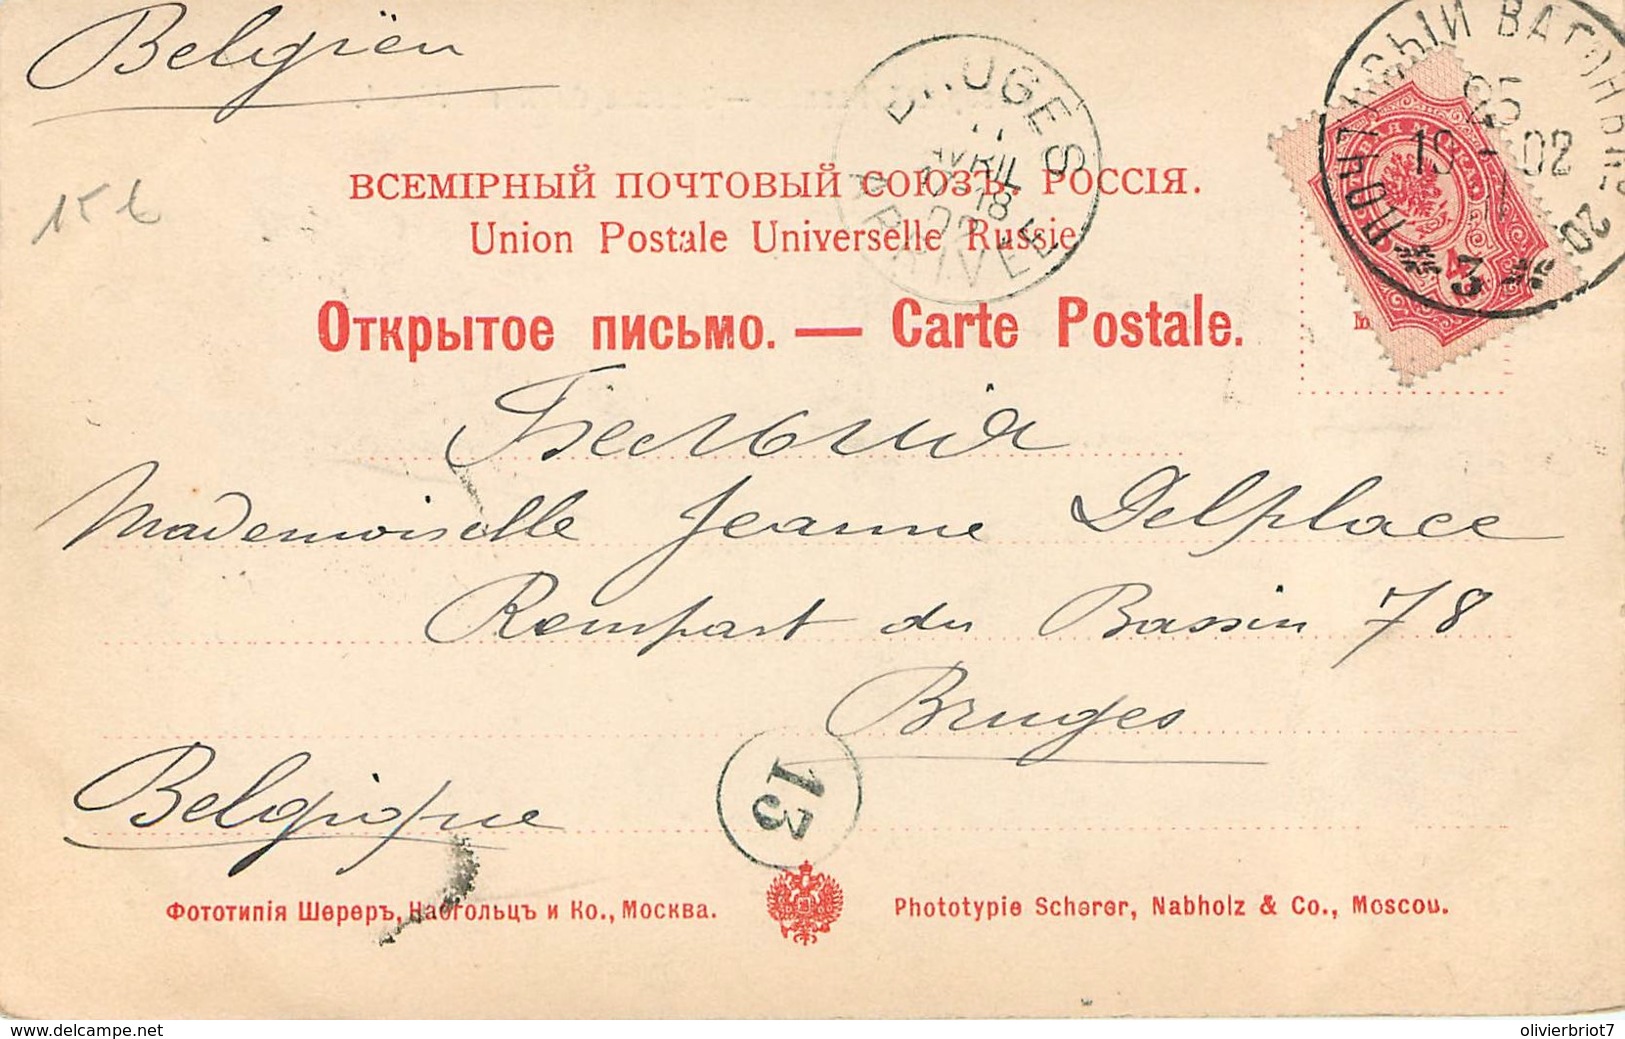 Belgiën
15 €
ВСЕМІРНЫЙ ПОЧТОВЫЙ СОЮЗЪ. РОССІЯ.
Union Postale Universelle Russie
Открытое письмо. — Carte Postale.
BRUGES
11
AVRIL
18
02
ARRIVÉE
ПОЧТОВЫЙ ВАГОНЪ № 20
19 02
* 3 *
Бельгія
Mademoiselle Jeanne Delplace
Rempart du Bassin 78
Bruges
Belgique
13
Фототипія Шереръ, Набгольцъ и Ко., Москва.
Phototypie Scherer, Nabholz & Co., Moscou.
www.delcampe.net
olivierbriot7